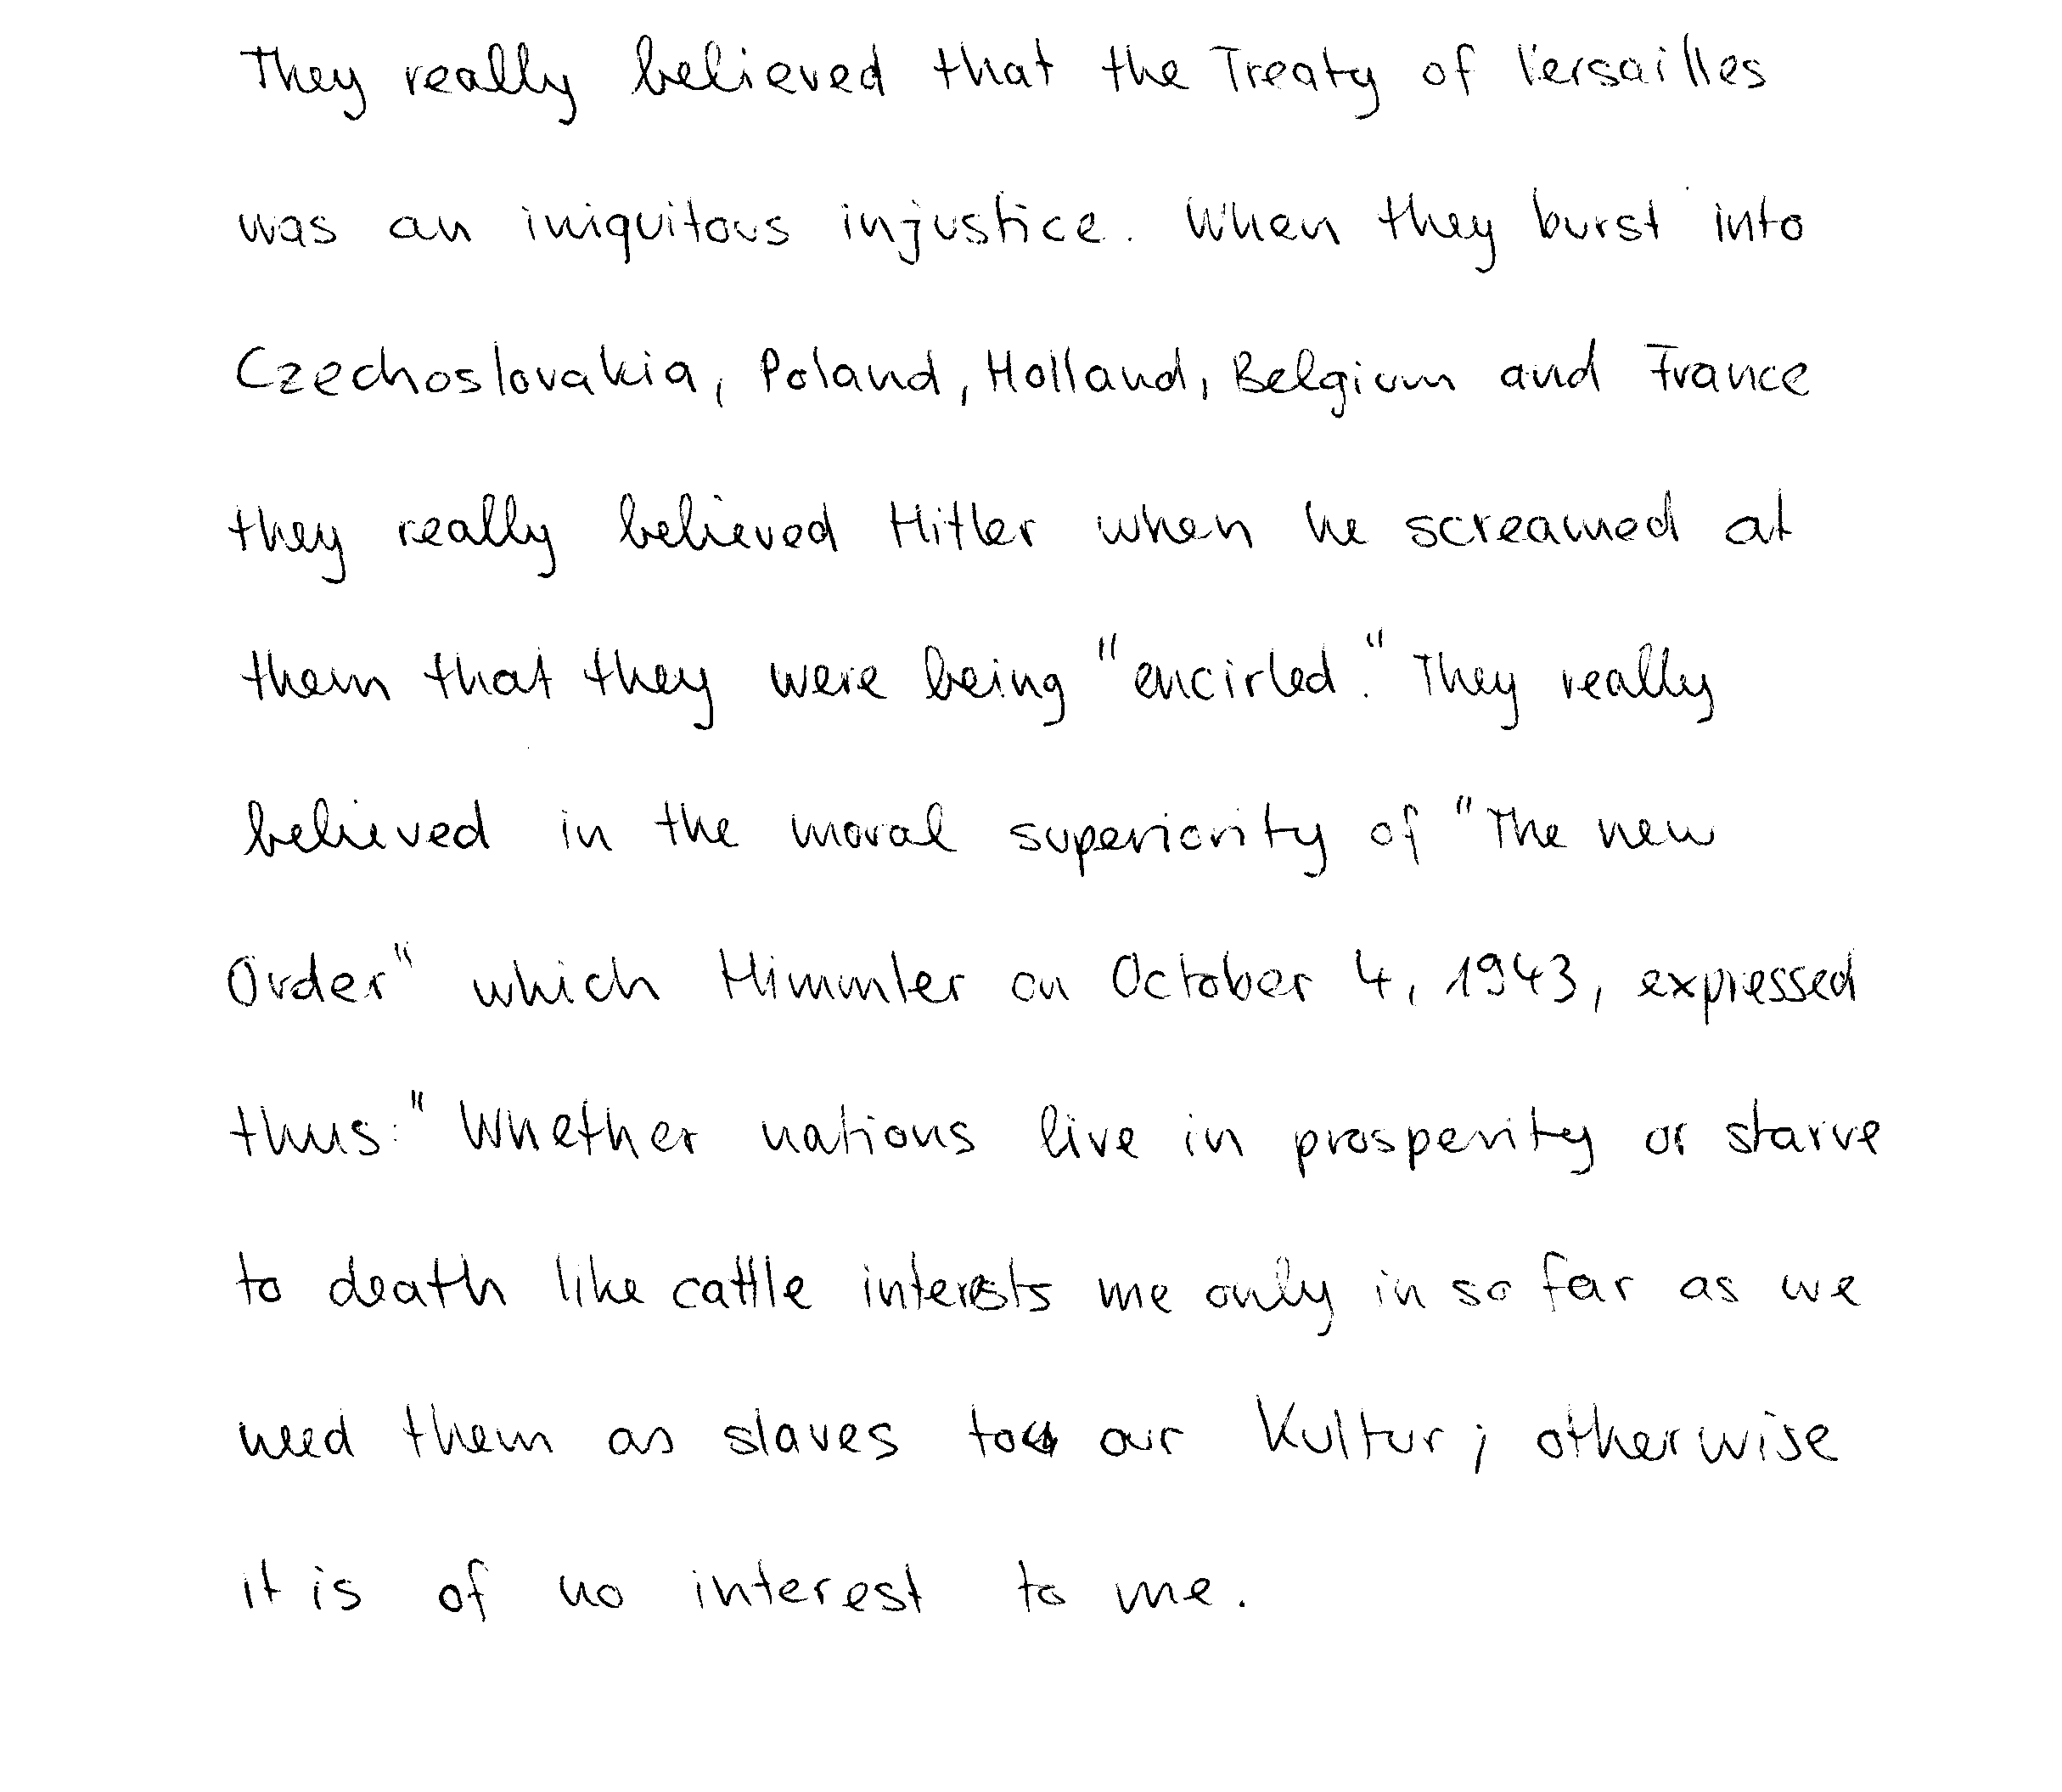 They really believed that the Treaty of Versailles
was an iniquitous injustice. When they burst into
Czechoslovakia, Poland, Holland, Belgium and France
they really believed Hitler when he screamed at
them that they were being "encirled." They really
believed in the moral superiority of "The new
Order" which Himmler on October 4, 1943, expressed
thus: "Whether nations live in prosperity or starve
to death like cattle interests me only in so far as we
need them as slaves to our Kultur; otherwise
it is of no interest to me.